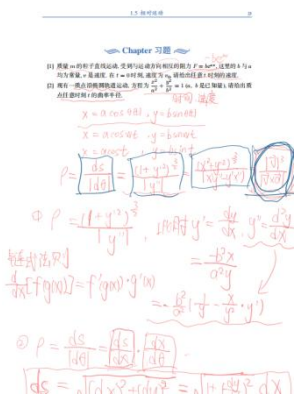 1.5 相对运动
Chapter 习题
[1] 质量 m 的粒子直线运动, 受到与运动方向相反的阻力 F = be^{αv}, 这里的 b 与 α
均为常量, v 是速度. 在 t = 0 时刻, 速度为 v₀, 请给出任意 t 时刻的速度.
[2] 现有一质点沿椭圆轨道运动, 方程为 x²/a² + y²/b² = 1
已知量), 请给出质
点任意时刻 t 的曲率半径.
x = acosθ(t) , y = bsinθ(t)
x = acosωt , y = bsinωt
x = acost , y = bsint
ρ = |ds/dθ| = (1+y'²)^{3/2}/|y''| =
① ρ = (1+y'²)^{3/2}/|y''| , 此时 y' = dy/dx , y'' = d²y/dx²
= -b²x/a²y
链式法则
d/dx[f(g(x))] = f'(g(x))·g'(x)
= -b²/a²(1/y - x/y²·y')
② ρ = ds/dθ = |ds/dx|·|dx/dθ|
ds = √(dx)²+(dy)² = √1+(dy/dx)² dx